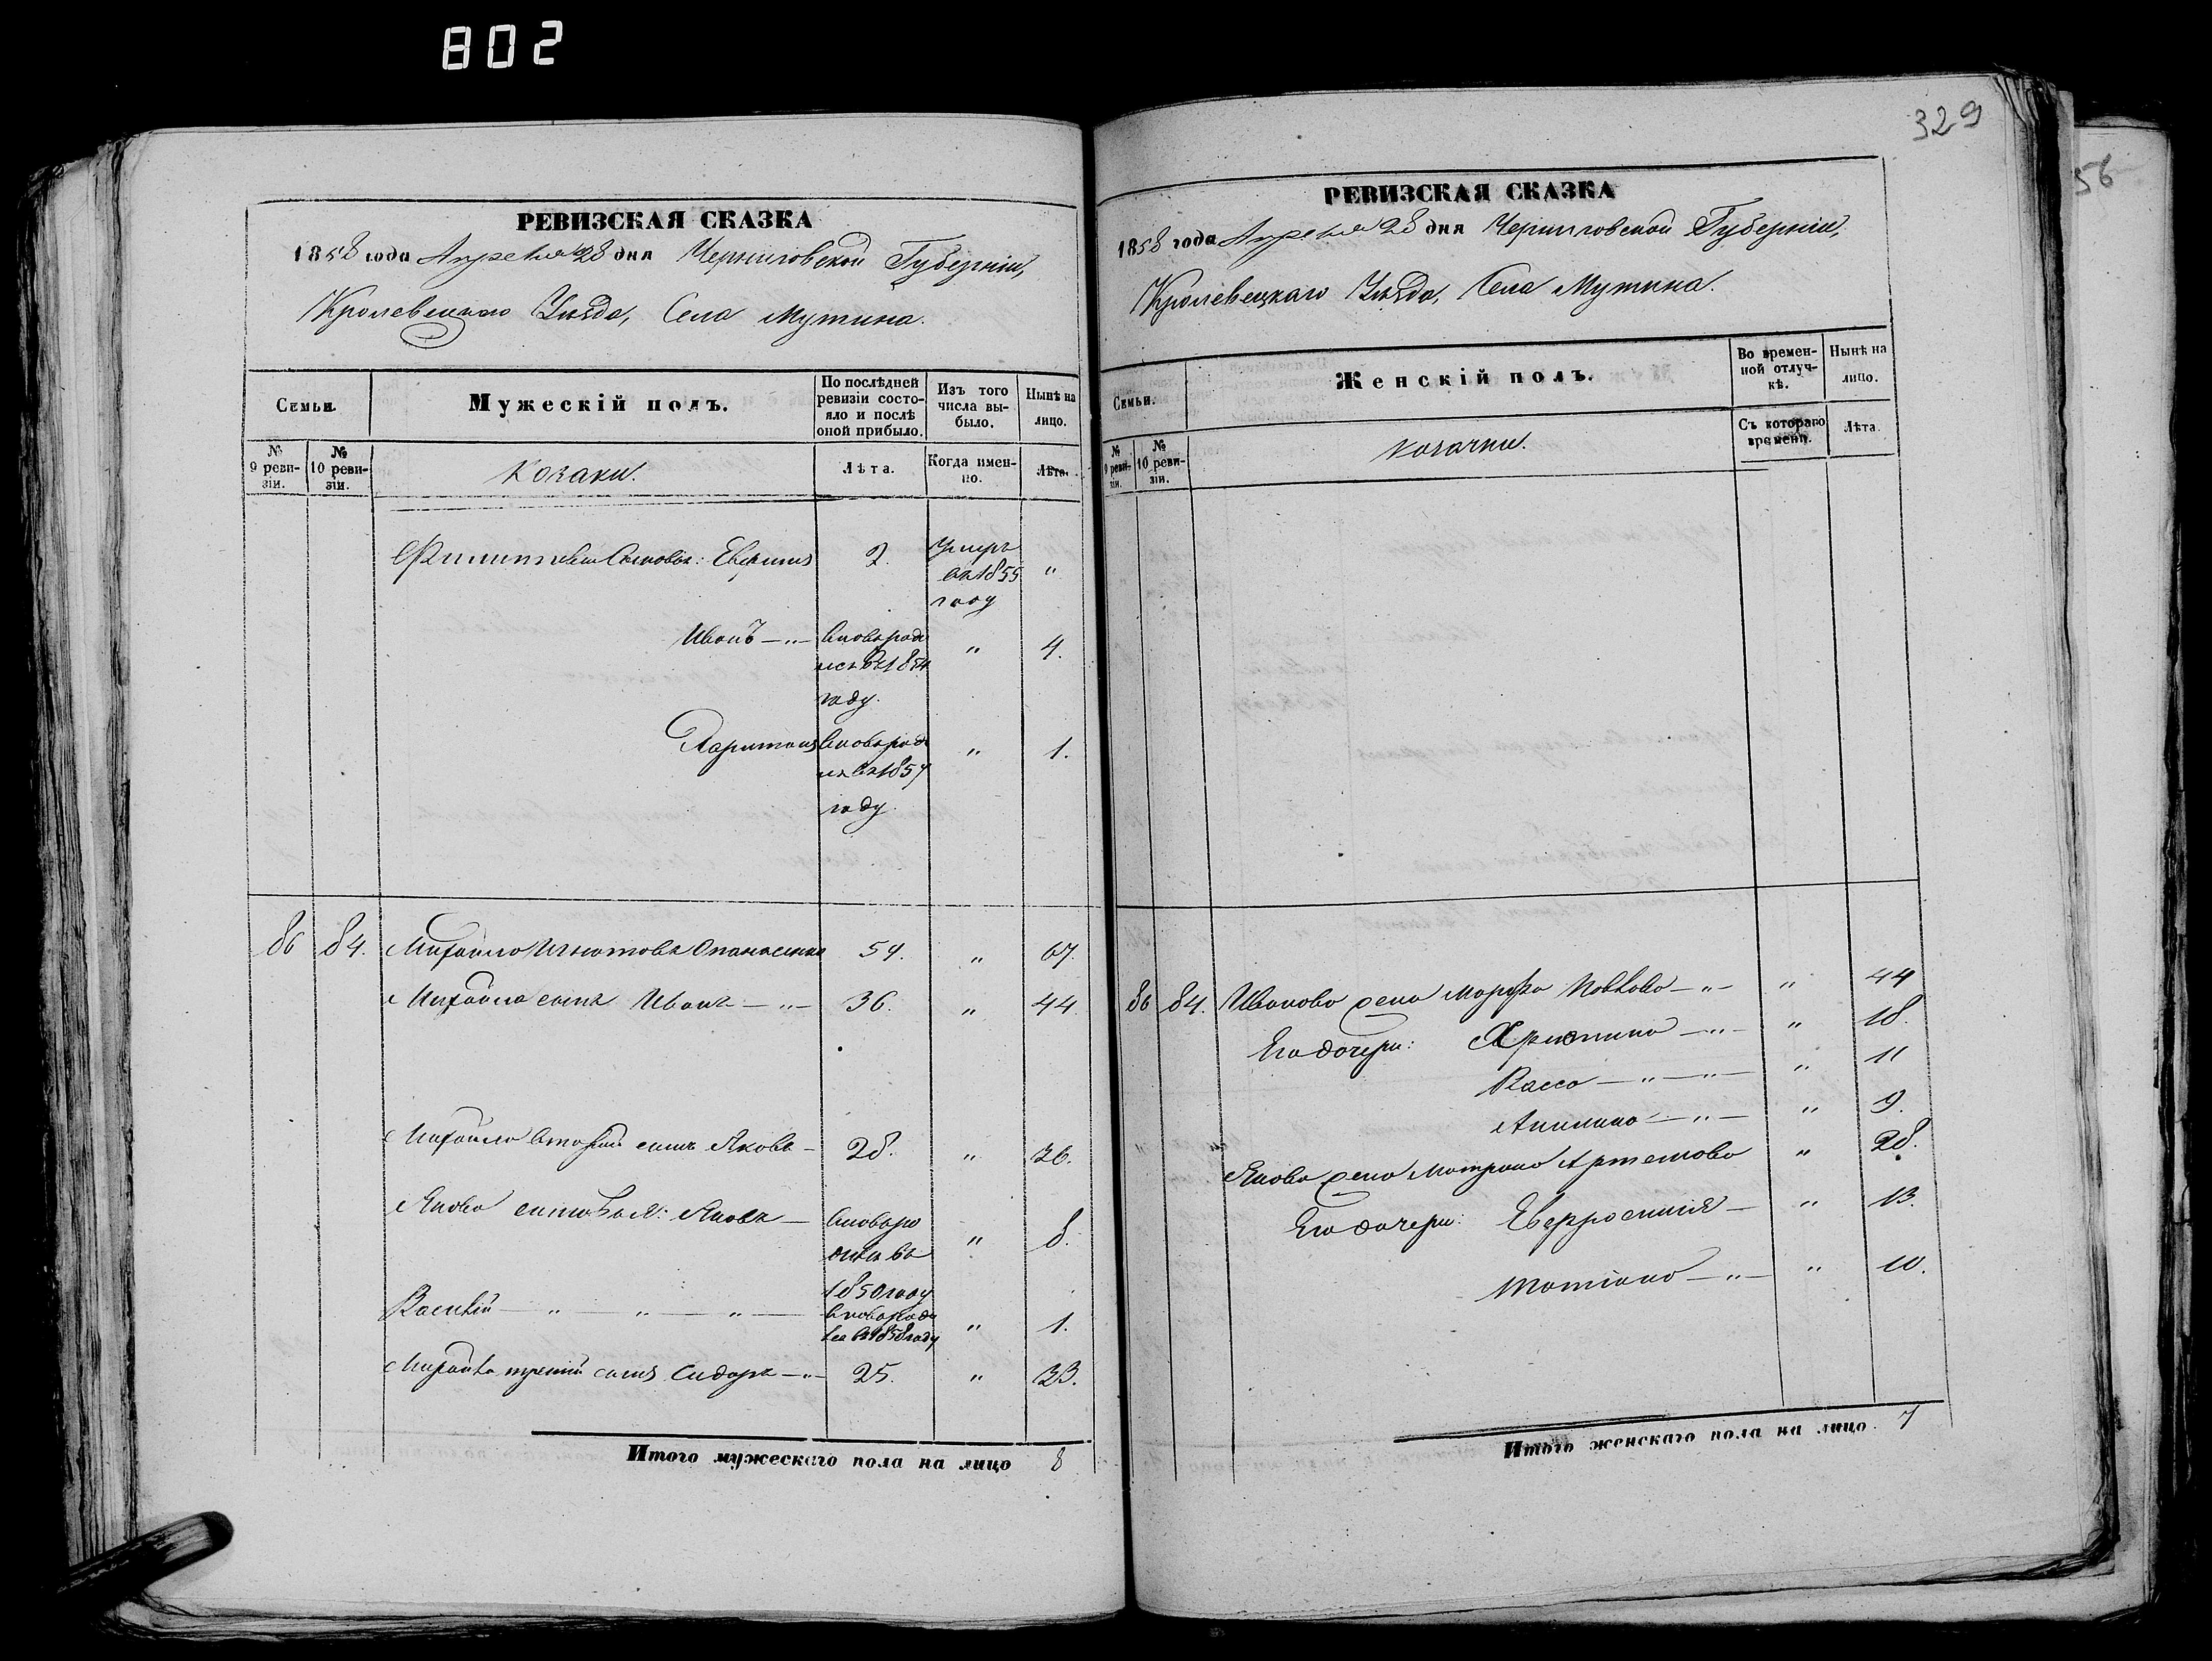 802
РЕВИЗСКАЯ СКАЗКА
1858 года Апреля 28 дня Черниговской Губернии,
Кролевецкаго Уезда, Села Мутина.
Семьи.
Мужескій полъ.
По послѣдней ревизіи состояло и послѣ оной прибыло.
Изъ того числа выбыло.
Нынѣ на лицо.
№ 9 ревизіи.
№ 10 ревизіи.
Козаки.
Лѣта.
Когда именно.
Лѣта.
сыновья: 2. умеръ въ 1855 году "
Иванъ — " — вновь родился въ 1854 году. " 4.
Харитонъ вновь родился въ 1857 году. " 1.
86 84. Михайло Опанасенко 59. " 67.
Михайла сынъ Иванъ — " — 36. " 44
Михайла вторый сынъ Яковъ — 28. " 36.
Якова сыновья: Яковъ — вновь родился въ 1850 году " 8.
Василій — " — " — " — вновь родился въ 1858 году " 1.
Михайла третій сынъ Сидоръ — " — 25. " 33.
Итого мужескаго пола на лицо 8
329
56
РЕВИЗСКАЯ СКАЗКА
1858 года Апреля 28 дня Черниговской Губернии,
Кролевецкаго Уезда, Села Мутина.
Семьи.
Женскій полъ.
Во временной отлучкѣ.
Нынѣ на лицо.
№ 9 ревизіи.
№ 10 ревизіи.
Козачки.
Съ котораго времени.
Лѣта.
86 84. Иванова жена Марфа — " — " 44
Его дочери: Христина — " — " 18.
Васса — " — " — " 11
Акилина — " — " 9.
Якова жена Матрона Артемова " 28.
Его дочери: Евфросинія — " 13.
Татіана — " — " 10.
Итого женскаго пола на лицо 7